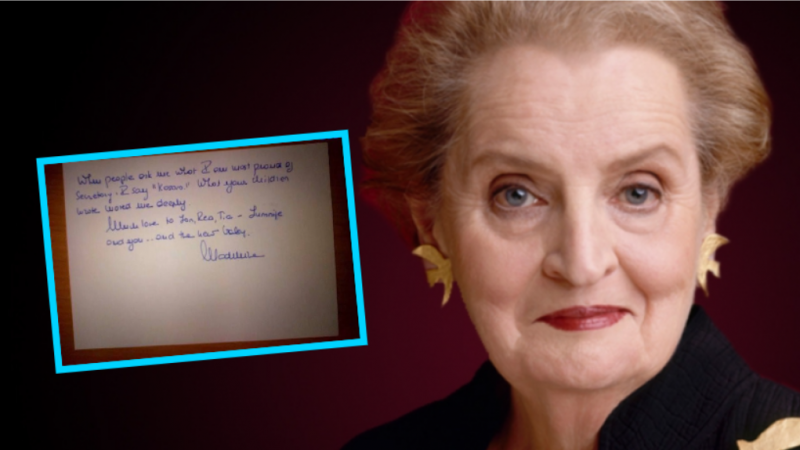 When people ask me what I am most proud of
Secretary - I say "Kosovo." What your children
wrote moved me deeply
Much love to Ian, Rea, Tia -
and you... and the new baby.
Madeleine